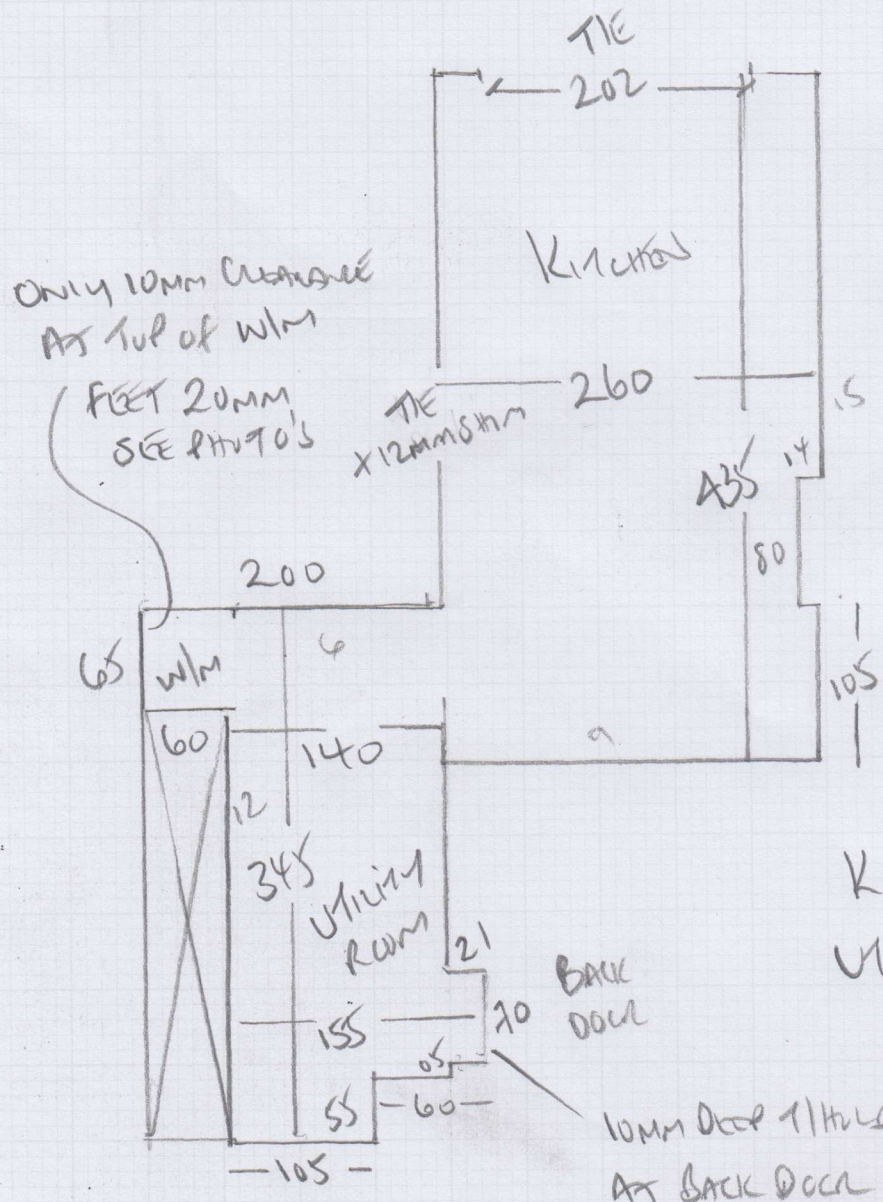 TIE
202
KITCHEN
ONLY 10MM CLEARANCE
AT TOP OF W/M
FEET 20MM
SEE PHOTO'S
TIE
260
15
14
435
80
200
6
65
W/M
105
60
140
9
12
345
UTILITY
ROOM
K
UT
21
BACK
DOOR
70
155
05
55
60
105
10MM DEEP T/HOLD
AT BACK DOOR